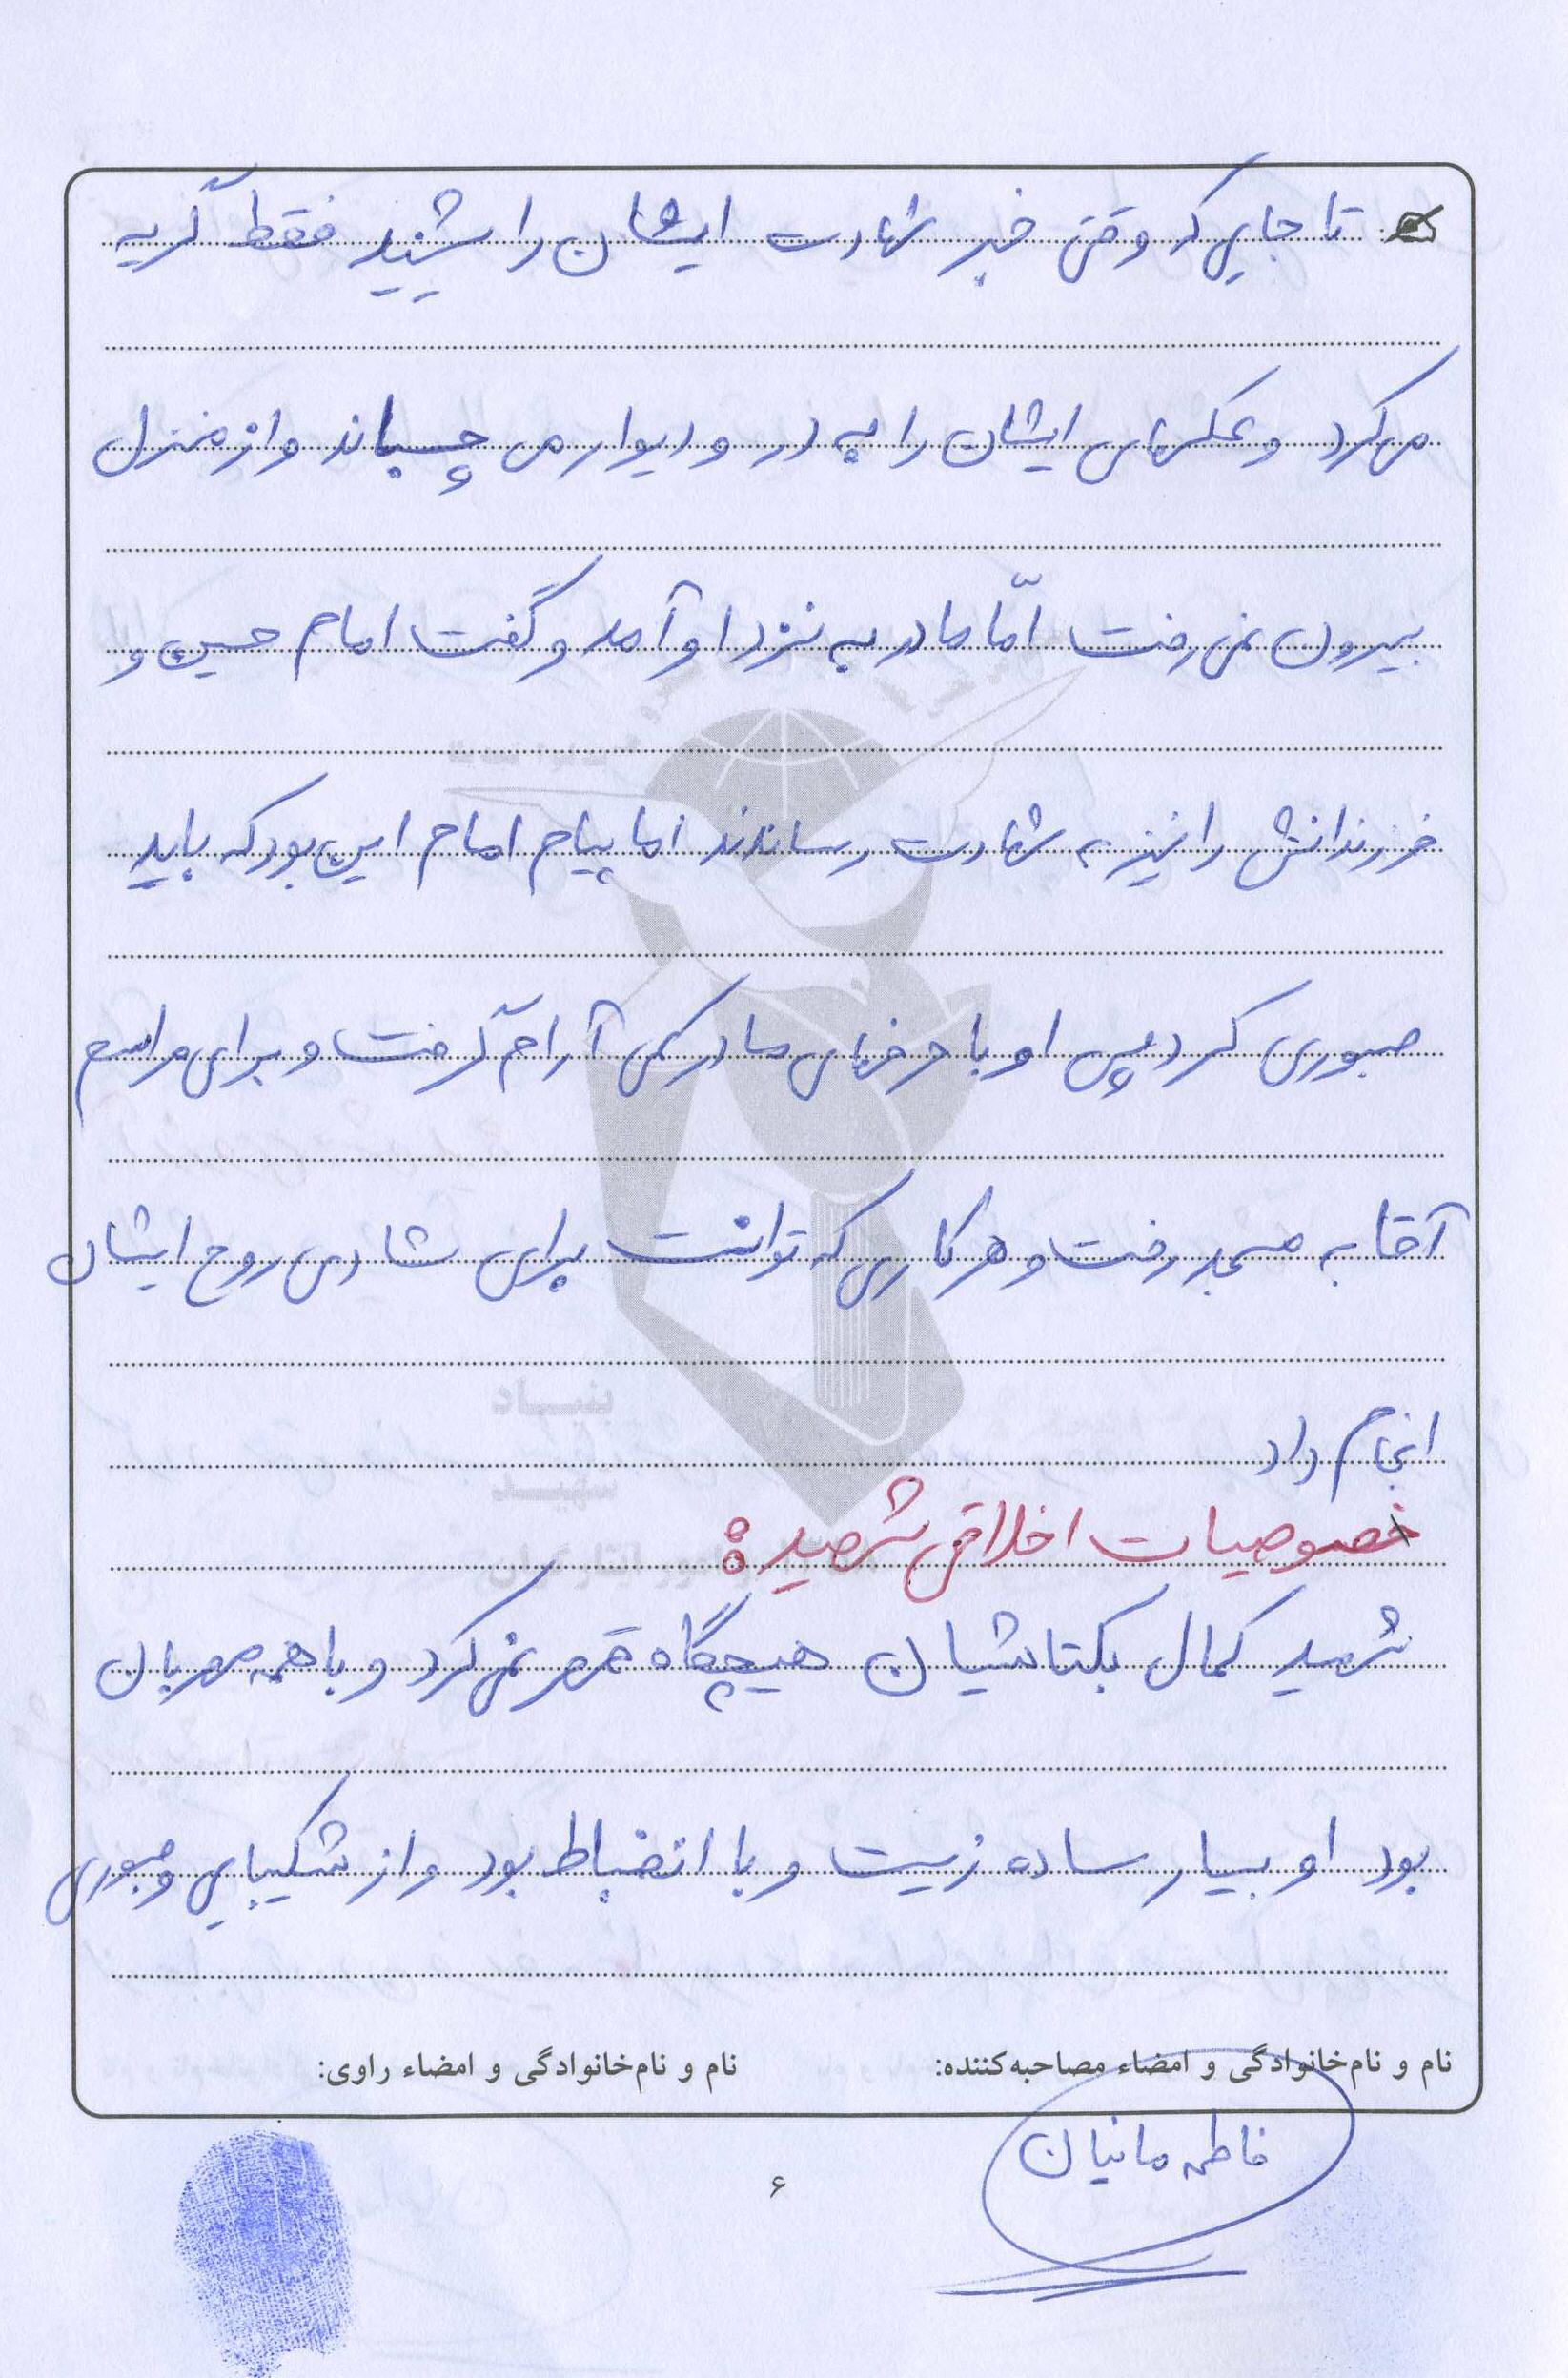 تا جایی که وقتی خبر شهادت ایشان را شنید فقط گریه
می کرد و عکسهای ایشان را به در و دیوار می چسباند و از منزل
بیرون نمی رفت امّا مادر به نزد او آمد و گفت امام حسین و
فرزندانش را نیز به شهادت رساندند اما پیام امام این بود که باید
صبوری کرد پس او با حرفهای مادر کمی آرام گرفت و برای مراسم
آقا به مسجد رفت و هر کاری که توانست برای شادی روح ایشان
انجام داد
خصوصیات اخلاقی شهید:
شهید کمال بکتاشیان هیچگاه قهر نمی کرد و با همه مهربان
بود او بسیار ساده زیست و با انضباط بود و از شکیبایی و صبوری
نام و نام‌خانوادگی و امضاء مصاحبه‌کننده: نام و نام‌خانوادگی و امضاء راوی:
فاطمه مانیان
۶